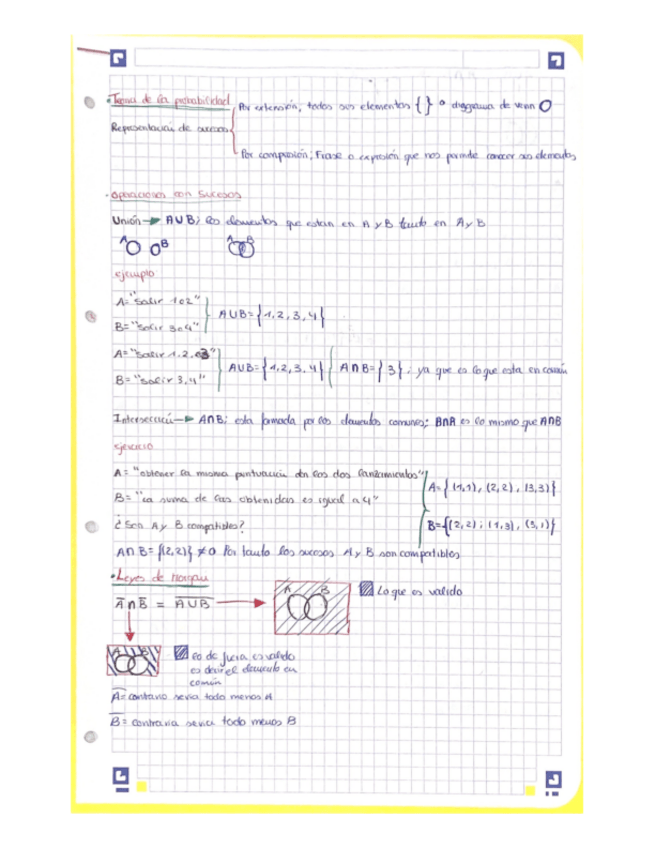 • Teoria de la probabilidad
Por extensión; todos sus elementos { } o diagrama de venn O
Representación de sucesos
Por comprensión; Frase o expresión que nos permite conocer sus elementos
- operaciones con sucesos
Unión → A U B; los elementos que estan en A y B tanto en A y B
A B A B
ejemplo
A= "Salir 1 o 2"
A U B = {1, 2, 3, 4}
B= "Salir 3 o 4"
A= "Salir 1, 2, o 3"
A U B = {1, 2, 3, 4} A ∩ B = {3}; ya que es lo que esta en común
B= "Salir 3, 4"
Intersección → A∩B; esta formada por los elementos comunes; B∩A es lo mismo que A∩B
ejercicio
A= "obtener la misma puntuación en los dos lanzamientos"
A={(1,1), (2,2), (3,3)}
B= "la suma de las obtenidas es igual a 4"
B={(2,2); (1,3), (3,1)}
¿ Son A y B compatibles?
A ∩ B = {(2,2)} ≠ 0 Por tanto los sucesos A y B son compatibles
• Leyes de morgan
A̅ ∩ B̅ = A̅ U̅ B̅ → A B Lo que es valido
A B lo de fuera es valido
es decir el elemento en
común
A̅= contrario seria todo menos A
B̅= contraria seria todo menos B